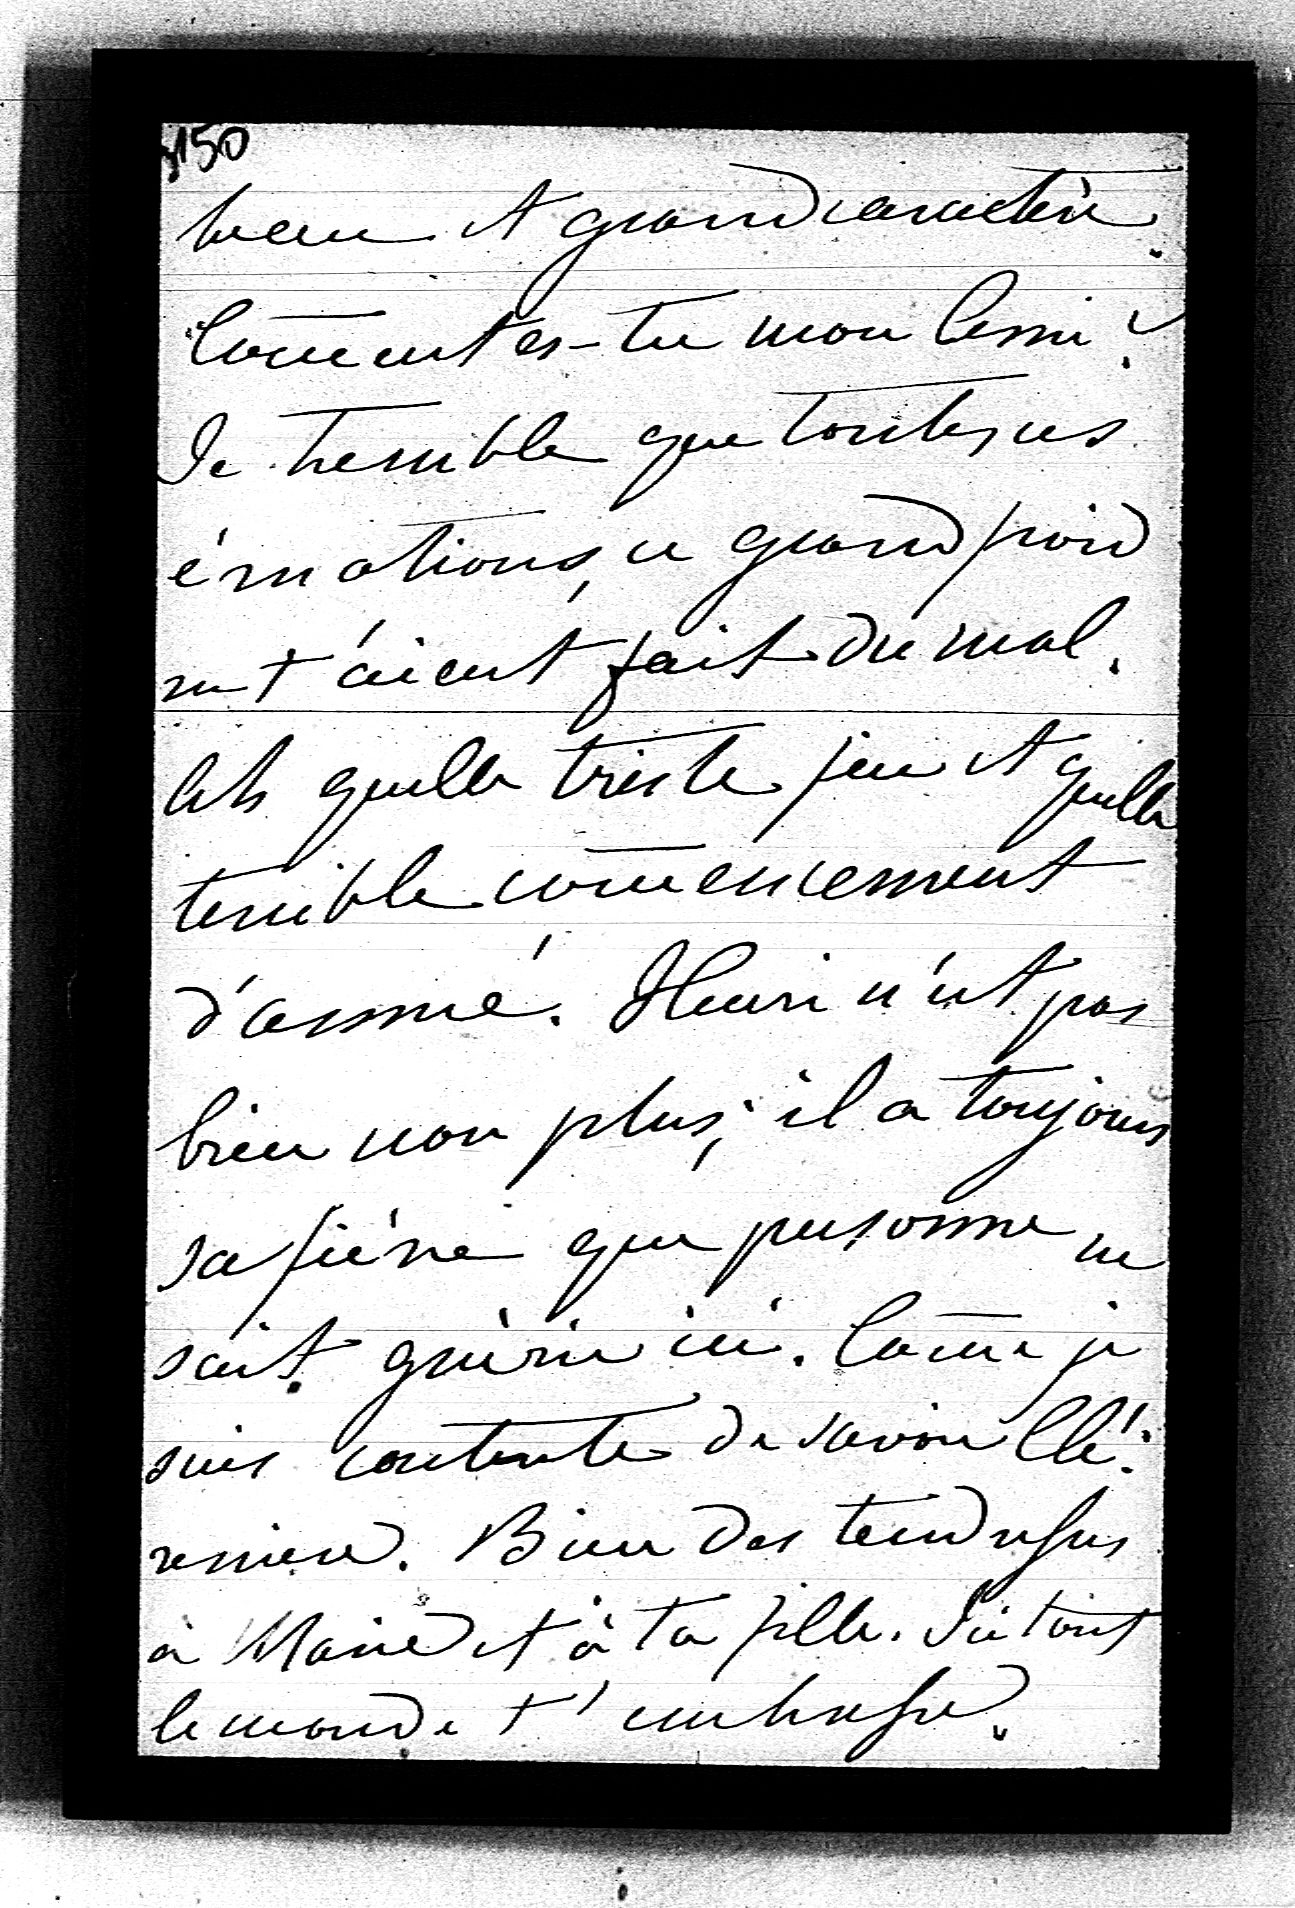 150
beau et grand caractère.
Com̄ent es-tu mon ami?
Je tremble que toutes ces
émotions, ce grand froid
ne t'aient fait du mal.
Ah quelle triste fin et quelle
terrible com̄encement
d'année. Henri n'est pas
bien non plus; il a toujours
sa fièvre que personne ne
sait guérir ici. Com̄e je
suis contente de savoir Clé.
Bien des tendresses
à Marie et à ta fille. Ici tout
le monde t'embrasse.